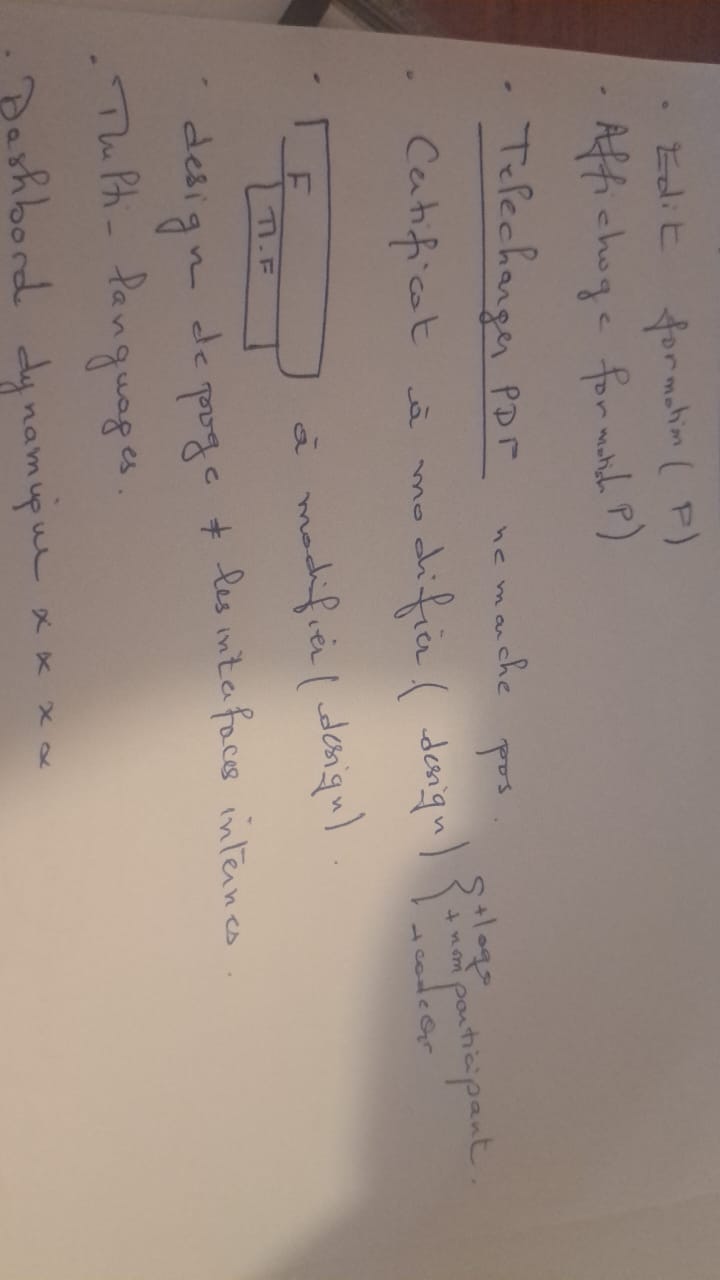 . Edit formation (P)
. Affichage formation P)
. Telecharger PDF ne marche pas.
. Catificat à modifier (design) { +logo
+nom participant.
+codeQr
. F
M.F
à modifier (design).
. design de page ≠ les interfaces internes.
. Multi-languages.
. Dashbord dynamique x x x x